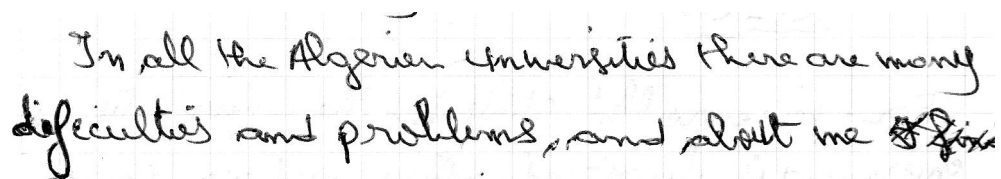 In all the Algerien universities there are many
difeculties and problems, and about me